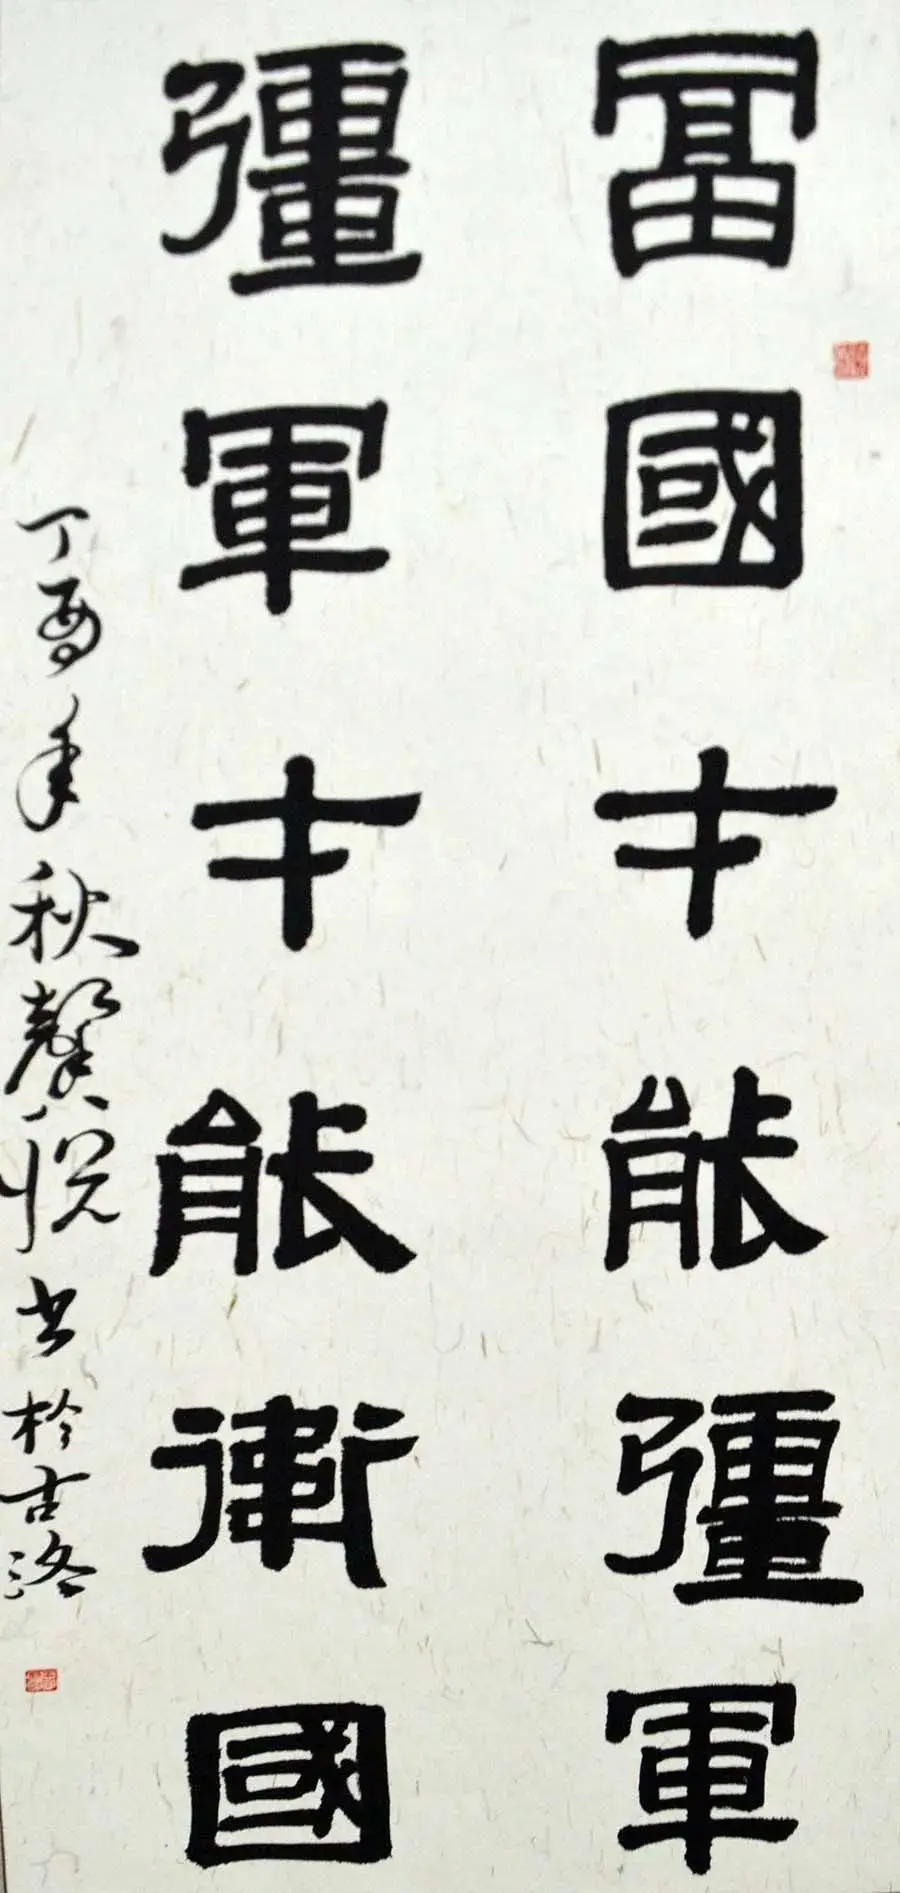 冨國才能彊軍
彊軍才能衛國
丁酉年秋馨悅书於古洛